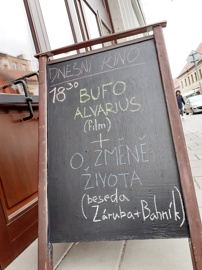 DNEŠNÍ KINO
18³⁰ BUFO
ALVARIUS
(film)
+
O ZMĚNĚ
ŽIVOTA
(beseda
Záruba+Bahník)